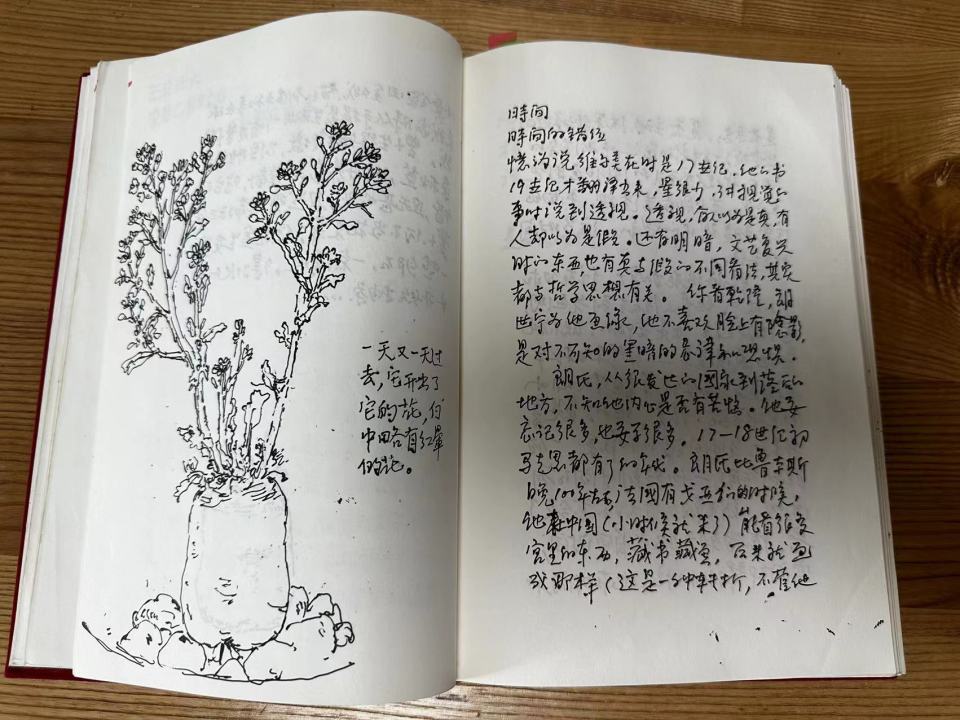 一天又一天过
去,它开出了
它的花,白
中田各有红暈
的花。
時间
時间的錯位
懐鸿说维米美在时是17世纪,他的书
19世纪才翻译出来,是维少,讲视觉的
事时说到透视。透视,有人以为是真,有
人却以为是假。还有明暗,文艺复兴
时的东西,也有真与假的不同看法,其实
都与哲学思想有关。你看乾隆,朗
世宁为他画像,他不喜欢脸上有陰影,
是对不可知的黑暗的忌諱和恐惧。
朗氏,从很发达的國家到落后的
地方,不知他内心是否有苦恼。他要
忘记很多,也要学很多。17—18世纪初
马克思都有了的年代。朗氏比鲁本斯
晚100年左右,法國有戈亚们的时候,
他在中國(小时候就来了)能看很多
宫里的东西,藏书藏画,后来就画
成那样(这是一种转折,不管他